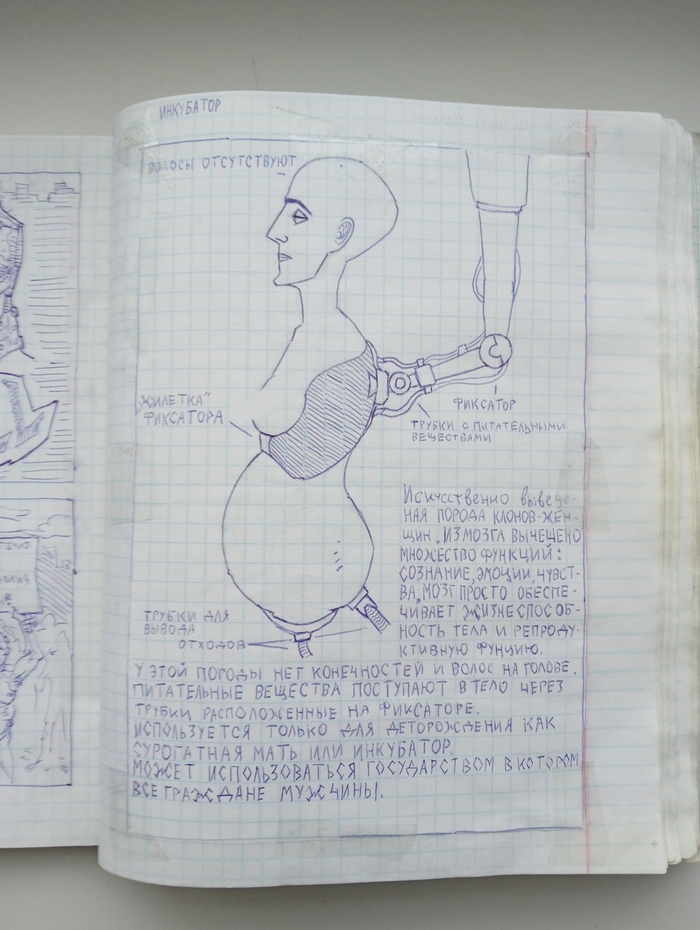 ИНКУБАТОР
ВОЛОСЫ ОТСУТСТВУЮТ
„ЖИЛЕТКА"
ФИКСАТОРА
ФИКСАТОР
ТРУБКИ С ПИТАТЕЛЬНЫМИ
ВЕЩЕСТВАМИ
Исичсственно выведе-
НАЯ ПОРОДА КЛОНОВ-ЖЕН-
ЩИН. ИЗ МОЗГА ВЫЧЕЩЕНО
МНОЖЕСТВО ФУНКЦИЙ:
СОЗНАНИЕ, ЭМОЦИИ, ЧУВСТ-
ВА, МОЗГ ПРОСТО ОБЕСПЕ-
ЧИВАЕТ ЖИЗНЕСПОСОБ-
НОСТЬ ТЕЛА И РЕПРОДУ-
КТИВНУЮ ФУНЦИЮ.
ТРУБКИ ДЛЯ
ВЫВОДА
ОТХОДОВ
У ЭТОЙ ПОРОДЫ НЕТ КОНЕЧНОСТЕЙ И ВОЛОС НА ГОЛОВЕ.
ПИТАТЕЛЬНЫЕ ВЕЩЕСТВА ПОСТУПАЮТ В ТЕЛО ЧЕРЕЗ
ТРУБКИ РАСПОЛОЖЕННЫЕ НА ФИКСАТОРЕ.
ИСПОЛЬЗУЕТСЯ ТОЛЬКО ДЛЯ ДЕТОРОЖДЕНИЯ КАК
СУРОГАТНАЯ МАТЬ ИЛИ ИНКУБАТОР.
МОЖЕТ ИСПОЛЬЗОВАТЬСЯ ГОСУДАРСТВОМ В КОТОРОМ
ВСЕ ГРАЖДАНЕ МУЖЧИНЫ.